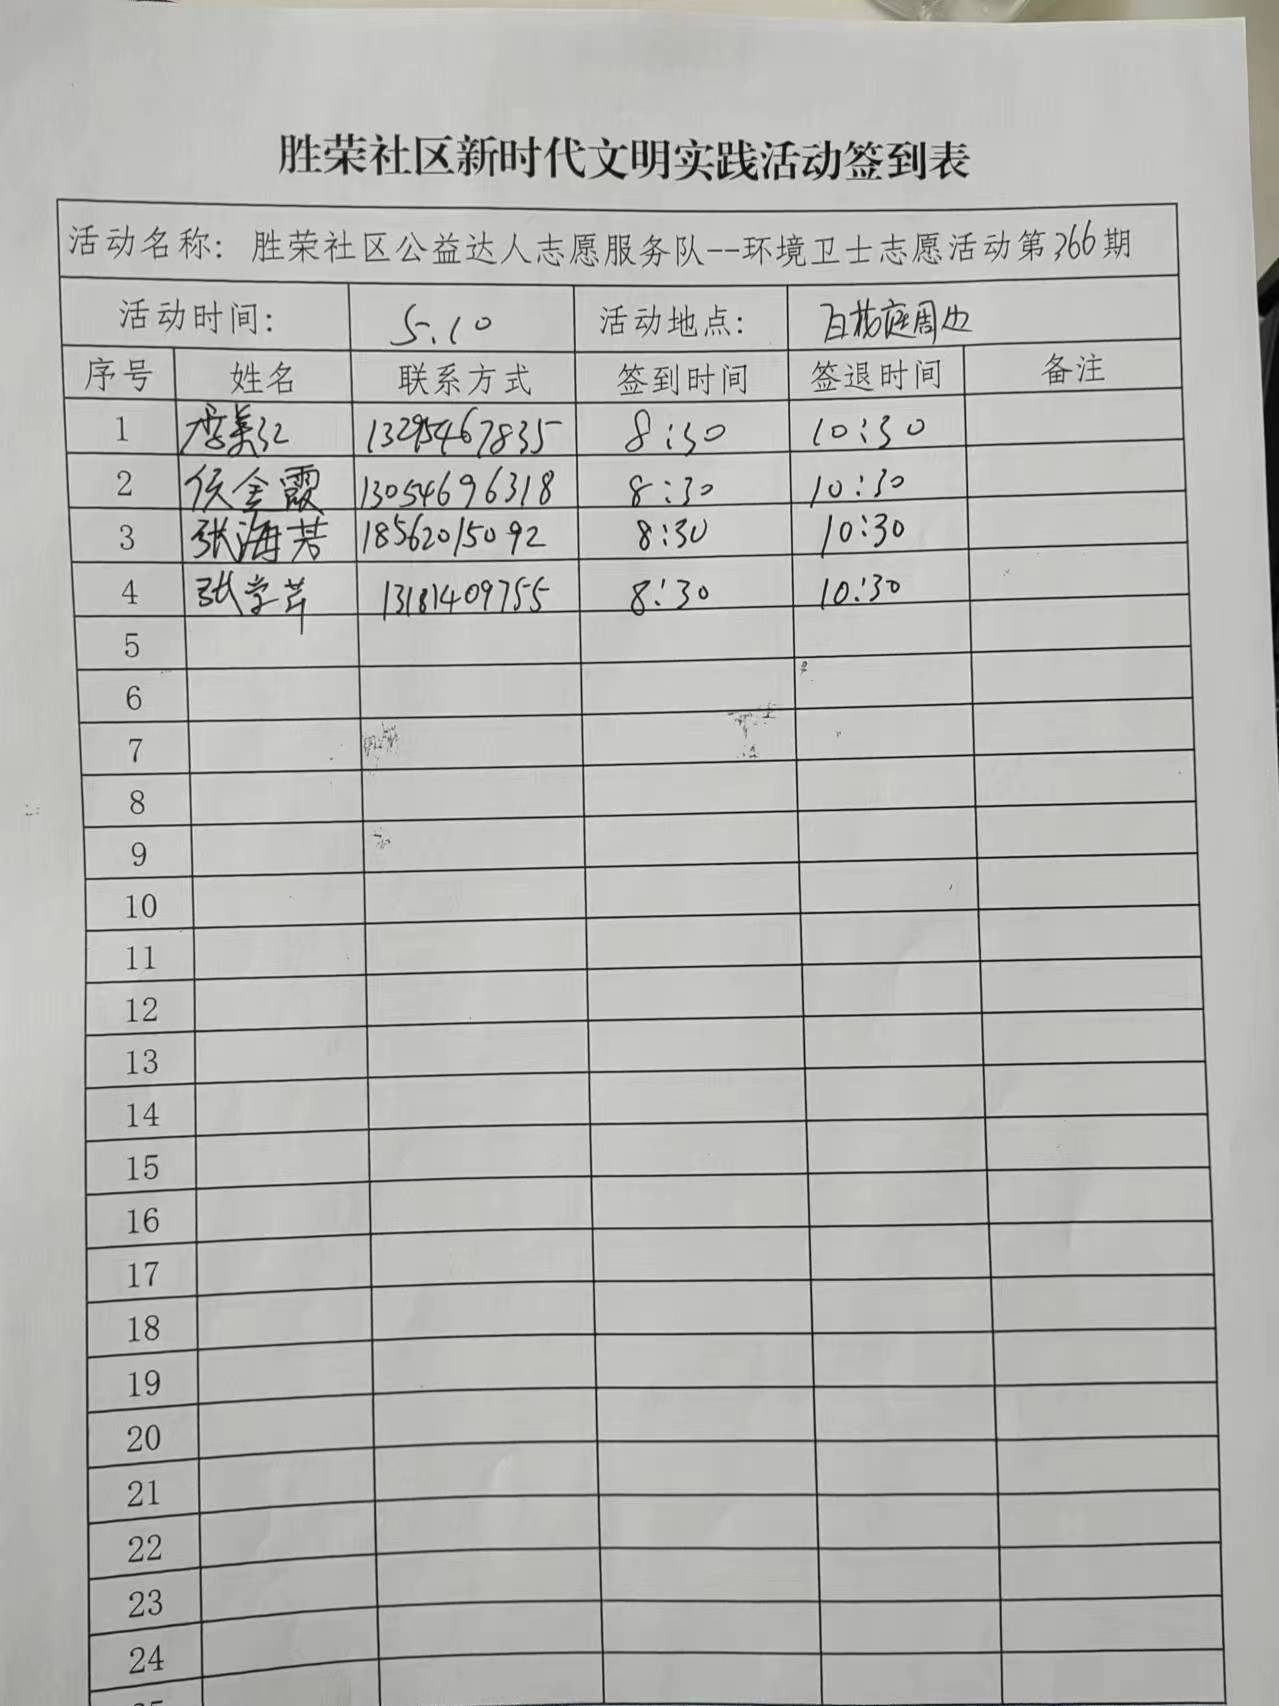 胜荣社区新时代文明实践活动签到表
活动名称：胜荣社区公益达人志愿服务队--环境卫士志愿活动第366期
活动时间： 5.10 活动地点： 百花庭周边
序号 姓名 联系方式 签到时间 签退时间 备注
1 李美江 13295467835 8:30 10:30
2 侯金霞 13054696318 8:30 10:30
3 张海芳 18562015092 8:30 10:30
4 张学芹 13181409755 8:30 10:30
5
6
7
8
9
10
11
12
13
14
15
16
17
18
19
20
21
22
23
24